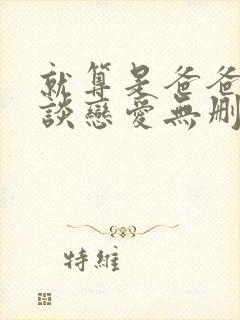 就算是爸爸
談戀愛無删
特維